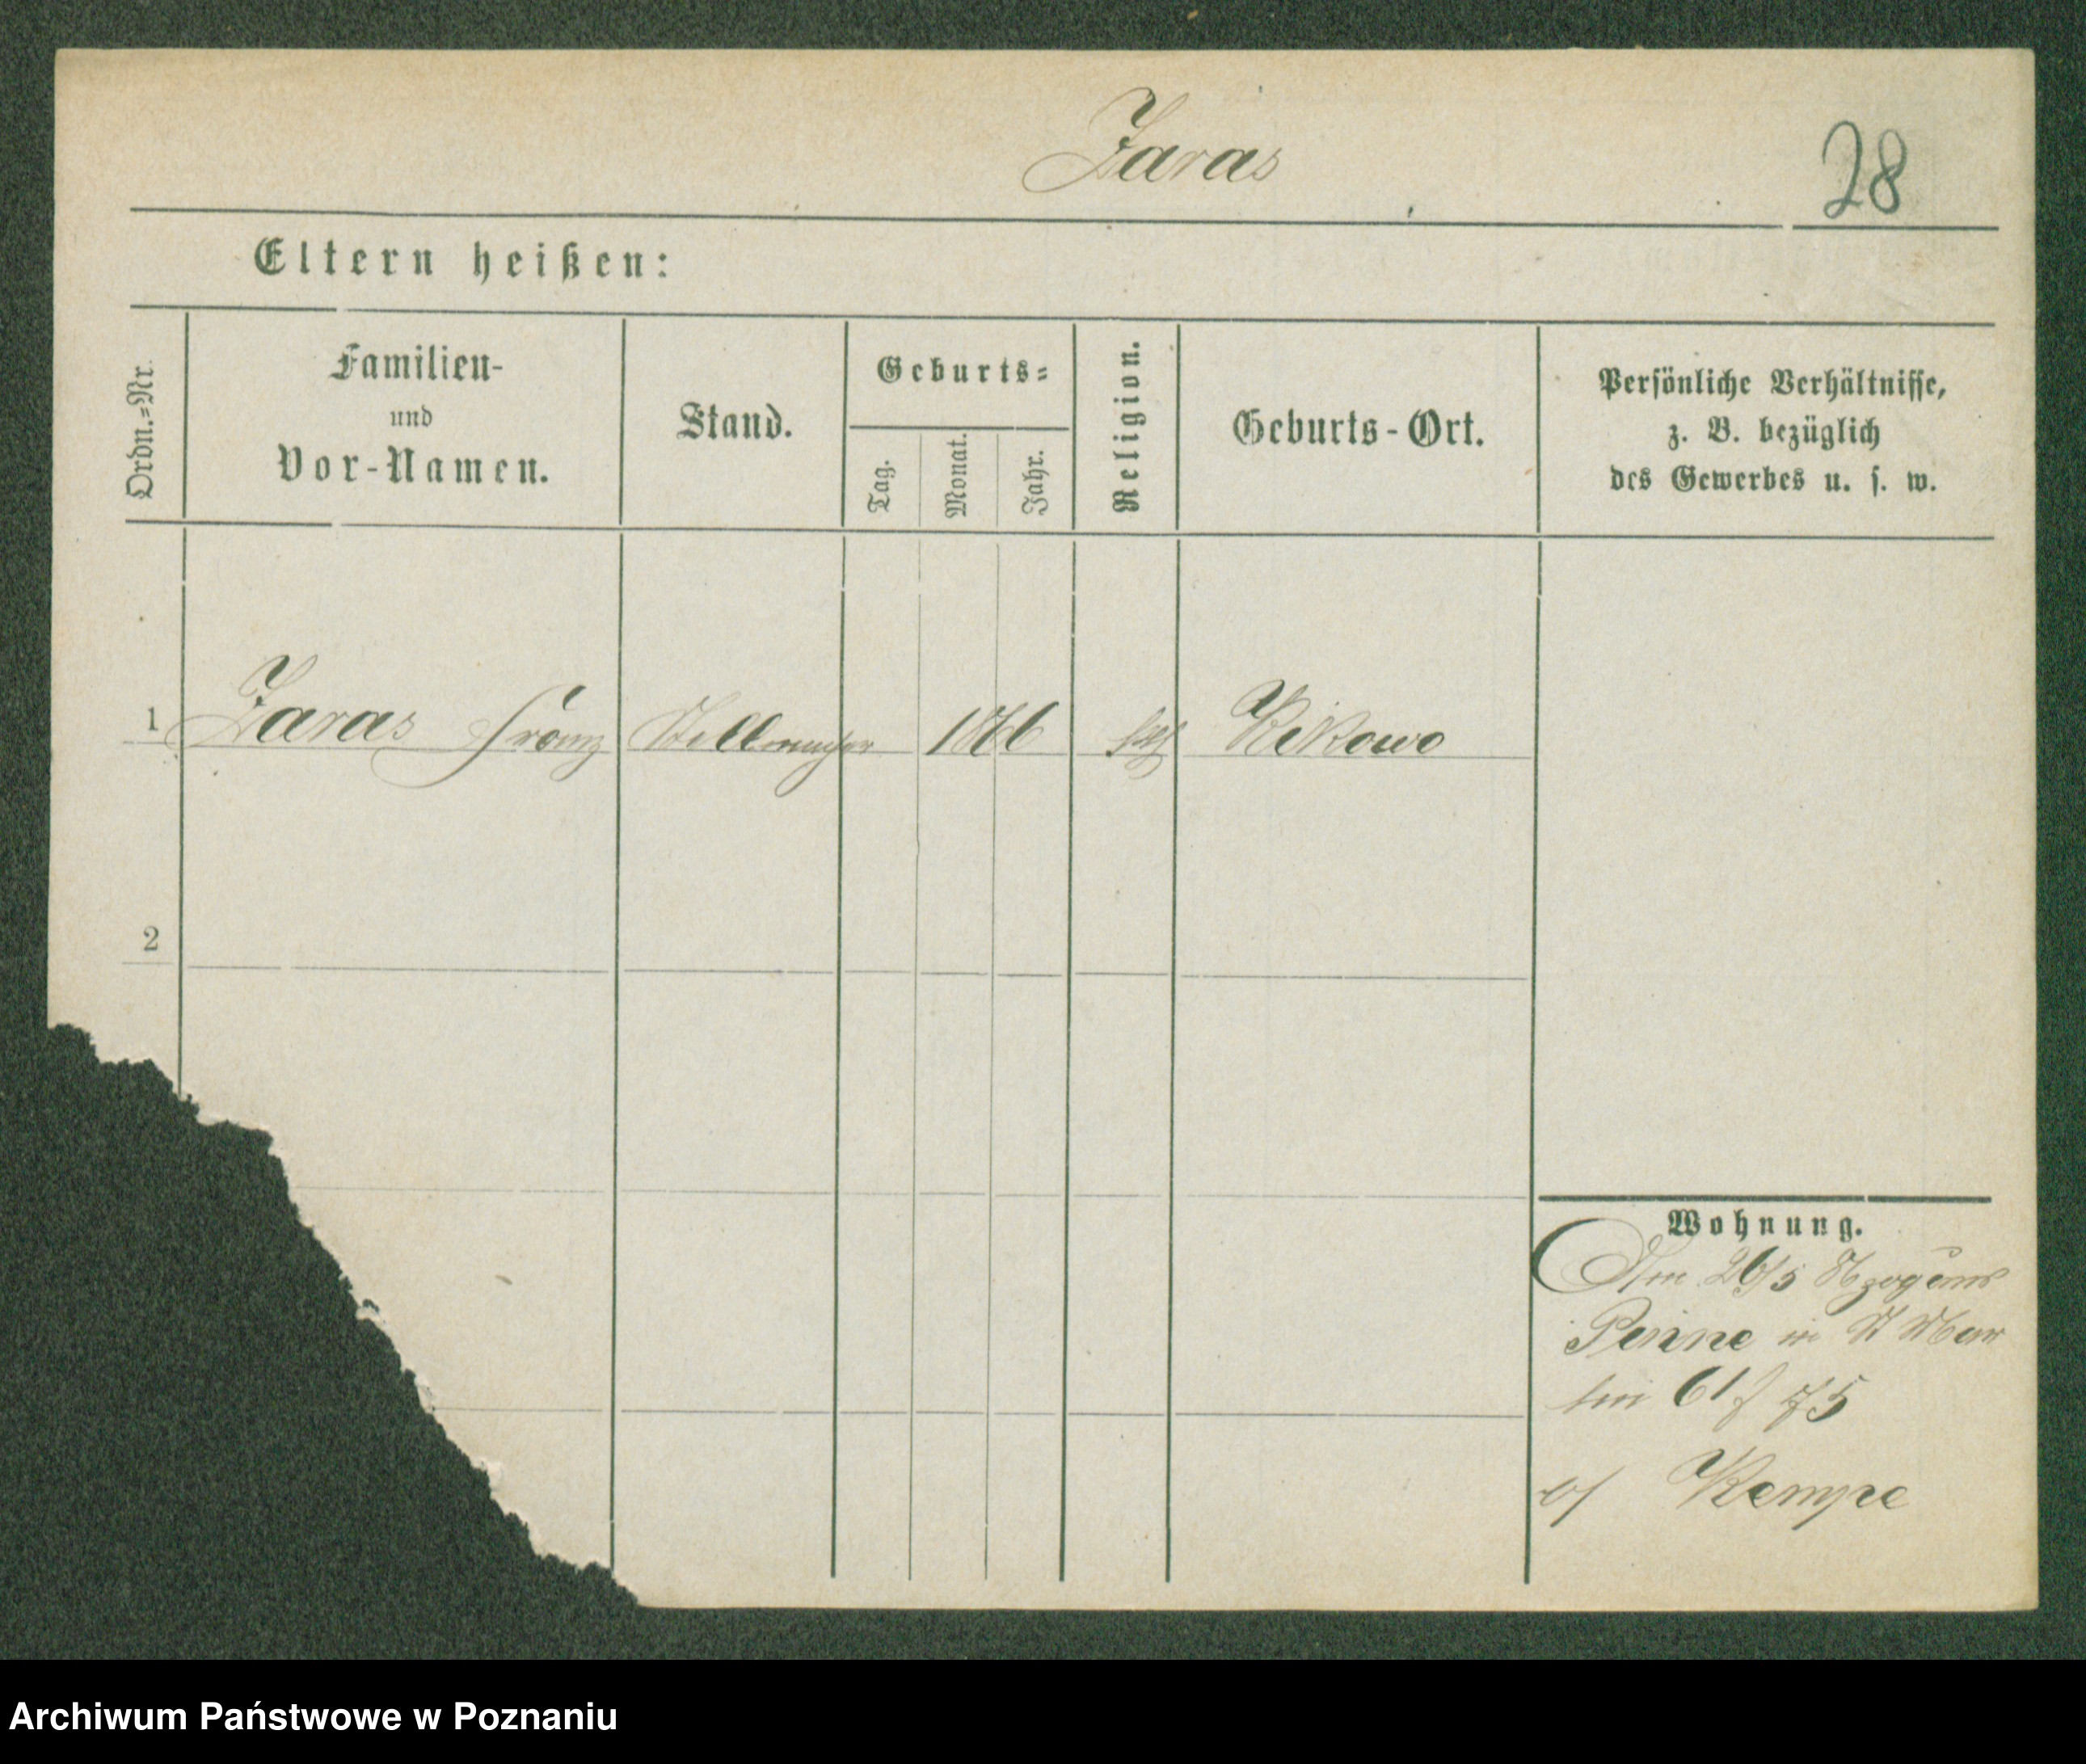 Zaras
28
Eltern heißen:
Ordn.=Nr.
Familien-
und
Vor-Namen.
Stand.
Geburts=
Tag.
Monat.
Jahr.
Religion.
Geburts-Ort.
Persönliche Verhältnisse,
z. B. bezüglich
des Gewerbes u. s. w.
1 Zaras Franz Stellmacher 1866 kth Kikowo
2
Wohnung.
Am 26/5
Pinne
61 75
b/ Kempe
Archiwum Państwowe w Poznaniu